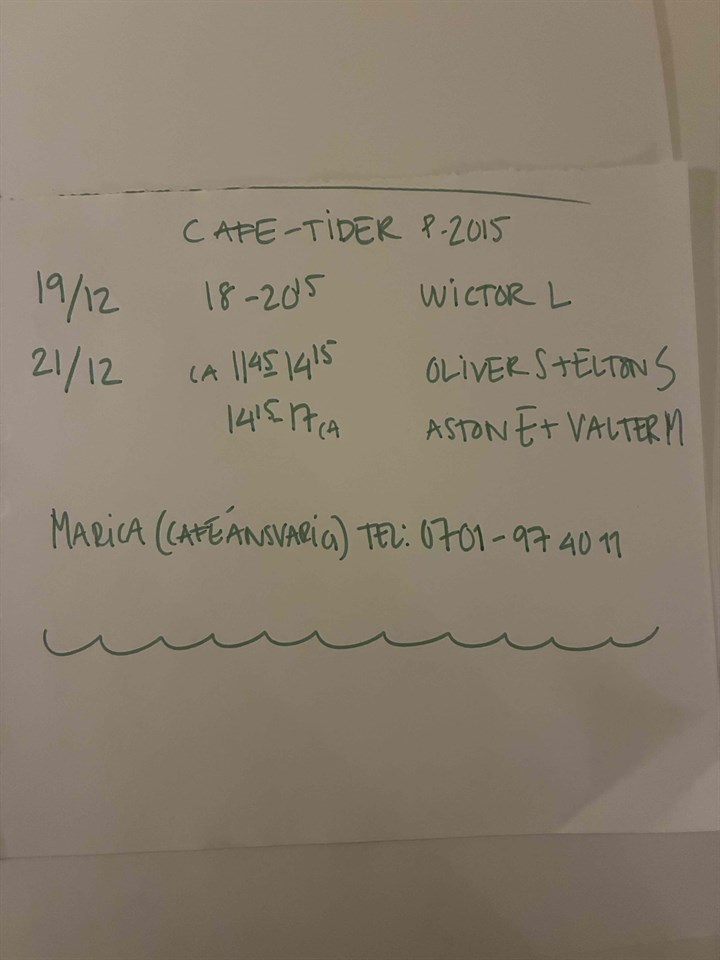 CAFE-TIDER P-2015
19/12 18-20¹⁵ WICTOR L
21/12 CA 11⁴⁵ 14¹⁵ OLIVER S + ELTON S
14¹⁵ 17 CA ASTON E + VALTER M
MARICA (CAFÉANSVARIG) TEL: 0701-97 40 11